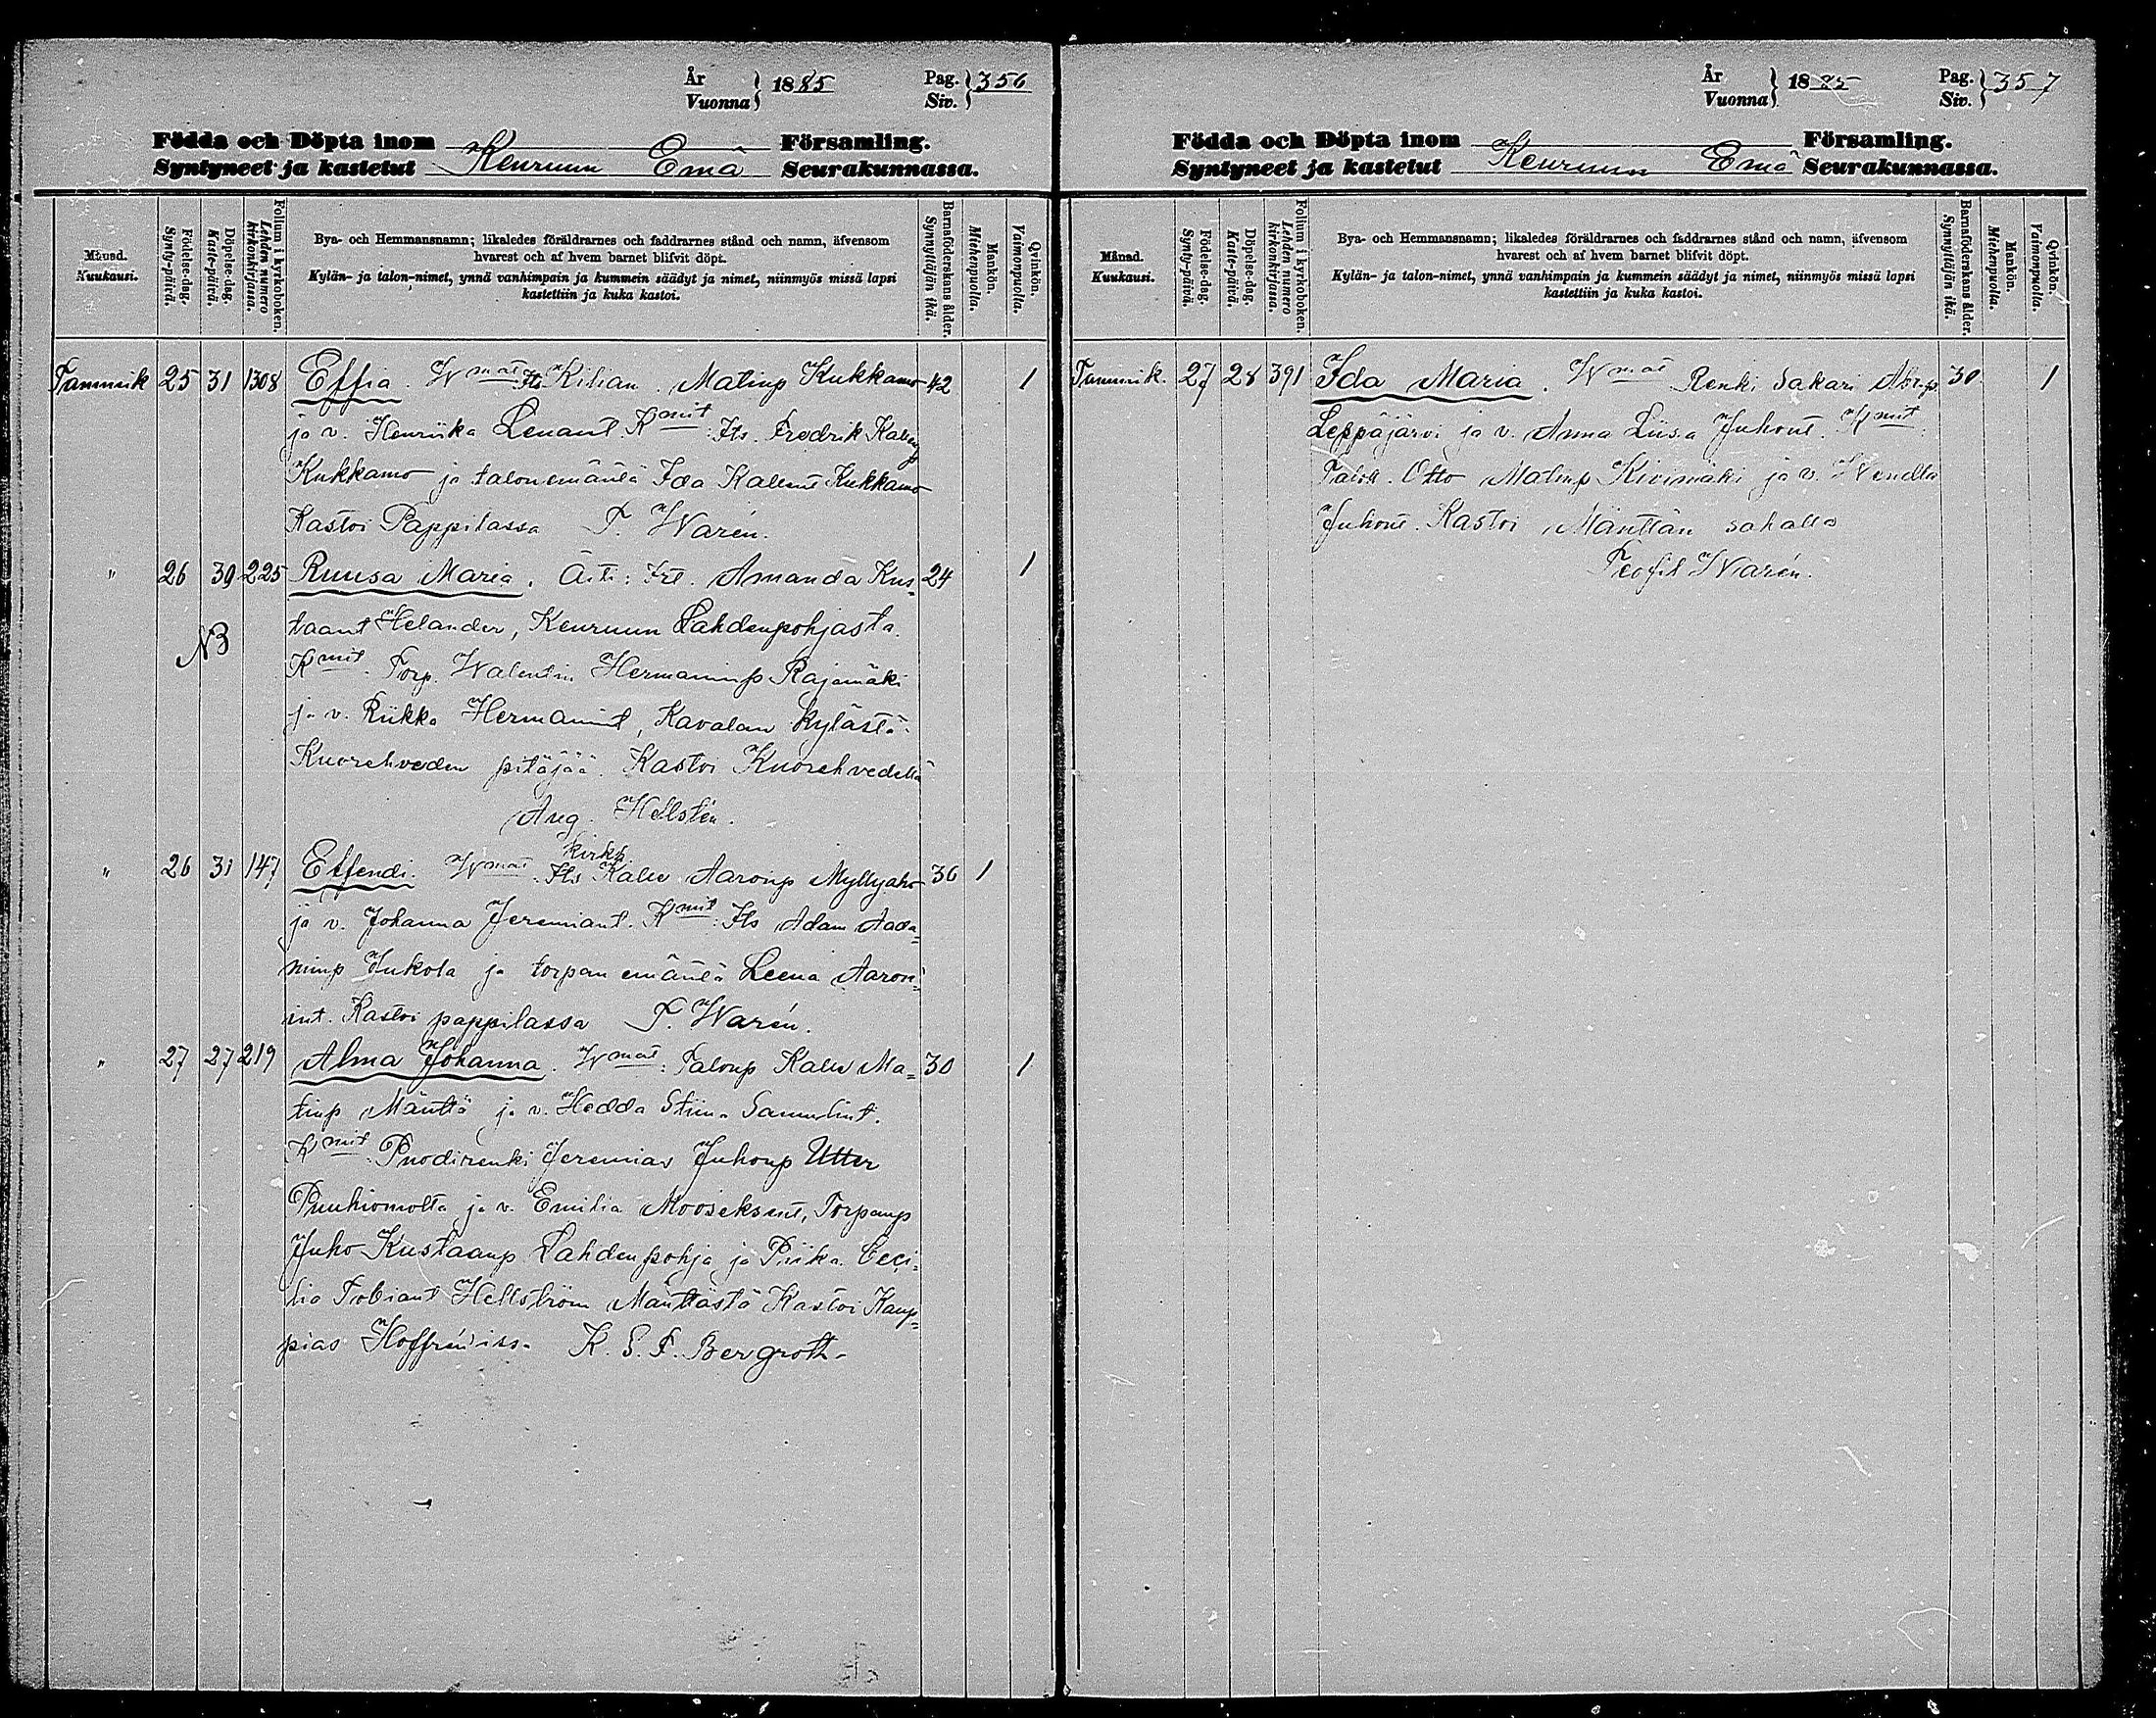 År
Vuonna } 1885
Pag.
Siv. } 356
Födda och Döpta inom Församling.
Syntyneet ja kastetut Keuruun Emä Seurakunnassa.
Månad.
Kuukausi.
Födelse-dag.
Synty-päivä.
Döpelse-dag.
Kaste-päivä.
Folium i kyrkoboken.
Lehden numero
kirkonkirjassa.
Bya- och Hemmansnamn; likaledes föräldrarnes och faddrarnes stånd och namn, äfvensom
hvarest och af hvem barnet blifvit döpt.
Kylän- ja talon-nimet, ynnä vanhimpain ja kummein säädyt ja nimet, niinmyös missä lapsi
kastettiin ja kuka kastoi.
Barnaföderskans ålder.
Synnyttäjän ikä.
Mankön.
Miehenpuolia.
Qvinkön.
Vaimonpuolia.
Tammik 25 31 1308 Effia. Wmat Its Kilian Matinp Kukkamo 42 1
ja v. Henriika Lenant. Kmit: Its. Fredrik Kalenp
Kukkamo ja talonemäntä Ida Kalent Kukkamo
Kastoi Pappilassa T. Warén.
" 26 30 225 Ruusa Maria. Äiti: Itl. Amanda Kus= 24 1
NB taant Helander, Keuruun Lahdenpohjasta.
Kmit. Torp. Walentin Hermaninp Rajamäki
ja v. Riikka Hermanint, Kavalan kylästä
Kuorehveden pitäjää. Kastoi Kuorehvedellä
Aug. Hellstén.
kirkk.
" 26 31 147 Effendi. Wmat. Its Kalle Aaronp Myllyaho 36 1
ja v. Johanna Jeremiant. Kmit: Its Adam Aada=
minp Jukola ja torpan emäntä Leena Aaron=
int. Kastoi pappilassa T. Warén.
" 27 27 219 Alma Johanna. Wmat: Talonp Kalle Ma= 30 1
tinp Mänttä ja v. Hedda Stiina Samulint.
Kmit. Puodirenki Jeremias Juhonp Utter
ja v. Emilia Mooseksent, Torpanp
Juho Kustaanp Lahdenpohja ja Piika Ceci=
lia Tobiant Hellström Mänttästä Kastoi Kaup=
pias Hoffrén'issa K. E. F. Bergroth.
År
Vuonna } 1885
Pag.
Siv. } 357
Födda och Döpta inom Församling.
Syntyneet ja kastetut Keuruun Emä Seurakunnassa.
Månad.
Kuukausi.
Födelse-dag.
Synty-päivä.
Döpelse-dag.
Kaste-päivä.
Folium i kyrkoboken.
Lehden numero
kirkonkirjassa.
Bya- och Hemmansnamn; likaledes föräldrarnes och faddrarnes stånd och namn, äfvensom
hvarest och af hvem barnet blifvit döpt.
Kylän- ja talon-nimet, ynnä vanhimpain ja kummein säädyt ja nimet, niinmyös missä lapsi
kastettiin ja kuka kastoi.
Barnaföderskans ålder.
Synnyttäjän ikä.
Mankön.
Miehenpuolia.
Qvinkön.
Vaimonpuolia.
Tammik. 27 28 391 Ida Maria. Wmat Renki Sakari Abr.p. 30 1
Leppäjärvi ja v. Anna Liisa Juhont. Kmit:
Otto Matinp Kivimäki ja v. Wendla
Juhont. Kastoi Mänttän sahalla
Teofil Warén.